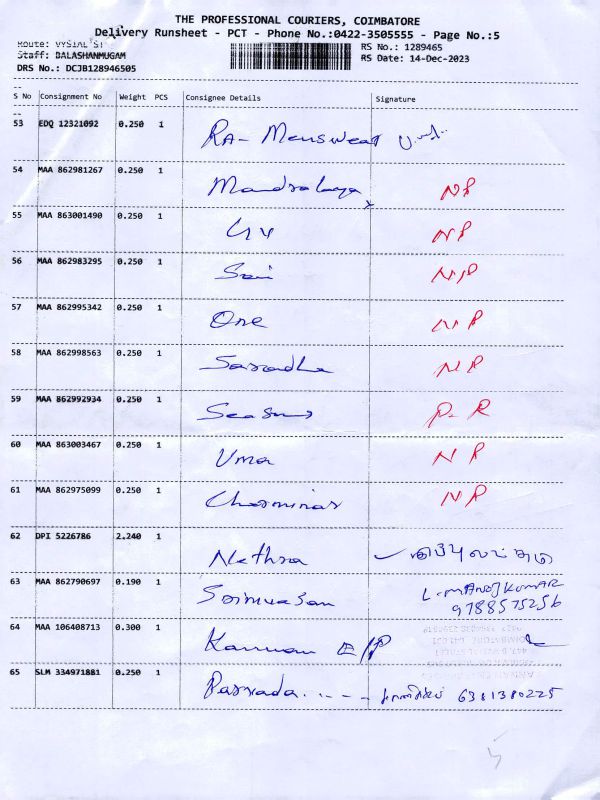 THE PROFESSIONAL COURIERS, COIMBATORE
Delivery Runsheet - PCT - Phone No.:0422-3505555 - Page No.:5
Route: VYSIAL ST
RS No.: 1289465
Staff: BALASHANMUGAM
RS Date: 14-Dec-2023
DRS No.: DCJB128946505
S No Consignment No Weight PCS Consignee Details Signature
53 EDQ 12321092 0.250 1 RA- Menswear
54 MAA 862981267 0.250 1 Mandralaya NP
55 MAA 863001490 0.250 1 NP
56 MAA 862983295 0.250 1 Sai NP
57 MAA 862995342 0.250 1 One NP
58 MAA 862998563 0.250 1 Saradha NP
59 MAA 862992934 0.250 1 Seasons P-R
60 MAA 863003467 0.250 1 Uma NP
61 MAA 862975099 0.250 1 Charminar NP
62 DPI 5226786 2.240 1 Nethra
63 MAA 862790697 0.190 1 Srinivasan L.MANOJ KUMAR
9788575256
64 MAA 106408713 0.300 1 Kannan E/P
65 SLM 334971881 0.250 1 6381380225